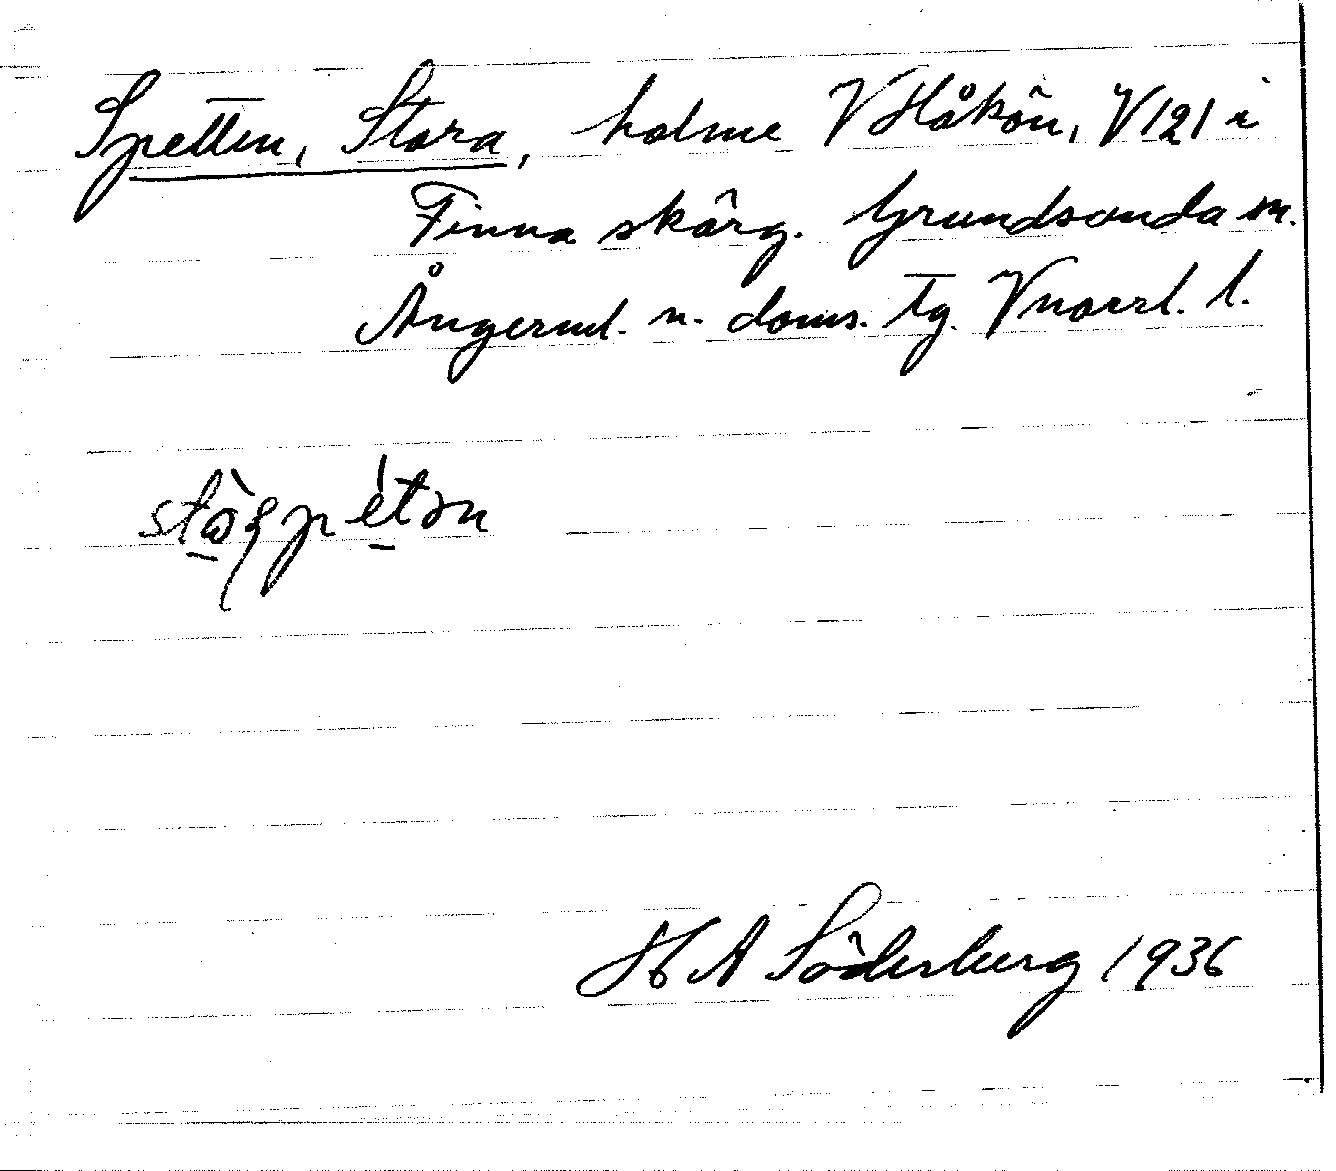 Spetten, Stora, holme V Håkön, V 121 i
Finna skärg. Grundsunda sn.
Ångerml. n. doms. tg. Vnorrl. l.
H A Söderberg 1936